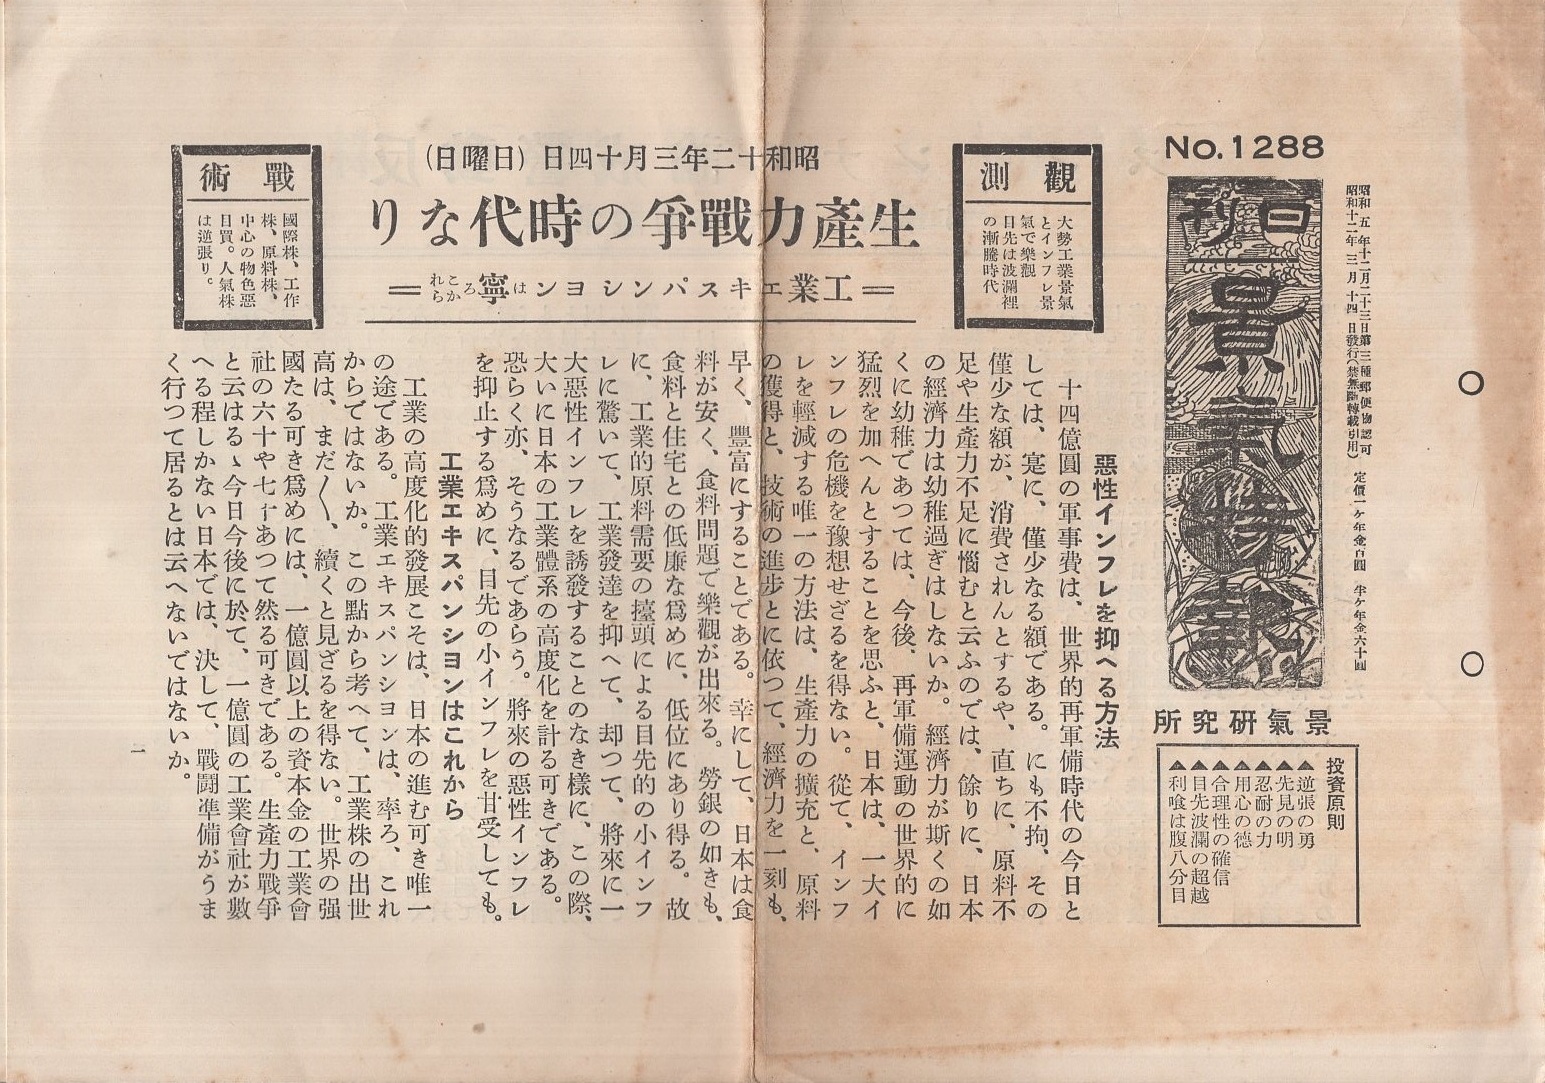 No.1288
日刊
景氣特報
景氣硏究所
昭和五年十二月二十三日第三種郵便物認可
昭和十二年三月十四日發行(禁無斷轉載引用)
定價一ケ年金百圓 半ケ年金六十圓
投資原則
▲逆張の勇
▲先見の明
▲忍耐の力
▲用心の德
▲合理性の確信
▲目先波瀾の超越
▲利喰は腹八分目
觀測
大勢工業景氣
とインフレ景
氣で樂觀
目先は波瀾裡
の漸騰時代
昭和十二年三月十四日(日曜日)
生產力戰爭の時代なり
=工業エキスパンシヨンは寧ろこれから=
戰術
國際株、工作
株、原料株、
中心の物色惡
目買。人氣株
は逆張り。
惡性インフレを抑へる方法
十四億圓の軍事費は、世界的再軍備時代の今日と
しては、寔に、僅少なる額である。にも不拘、その
僅少な額が、消費されんとするや、直ちに、原料不
足や生產力不足に惱むと云ふのでは、餘りに、日本
の經濟力は幼稚過ぎはしないか。經濟力が斯くの如
くに幼稚であつては、今後、再軍備運動の世界的に
猛烈を加へんとすることを思ふと、日本は、一大イ
ンフレの危機を豫想せざるを得ない。從て、インフ
レを輕減する唯一の方法は、生產力の擴充と、原料
の獲得と、技術の進步とに依つて、經濟力を一刻も、
早く、豐富にすることである。幸にして、日本は食
料が安く、食料問題で樂觀が出來る。勞銀の如きも、
食料と住宅との低廉な爲めに、低位にあり得る。故
に、工業的原料需要の擡頭による目先的の小インフ
レに驚いて、工業發達を抑へて、却つて、將來に一
大惡性インフレを誘發することのなき樣に、この際、
大いに日本の工業體系の高度化を計る可きである。
恐らく亦、そうなるであらう。將來の惡性インフレ
を抑止する爲めに、目先の小インフレを甘受しても。
工業エキスパンシヨンはこれから
工業の高度化的發展こそは、日本の進む可き唯一
の途である。工業エキスパンシヨンは、率ろ、これ
からではないか。この點から考へて、工業株の出世
高は、まだ〳〵、續くと見ざるを得ない。世界の强
國たる可き爲めには、一億圓以上の資本金の工業會
社の六十や七十あつて然る可きである。生產力戰爭
と云はるゝ今日今後に於て、一億圓の工業會社が數
へる程しかない日本では、決して、戰鬪準備がうま
く行つて居るとは云へないではないか。
一